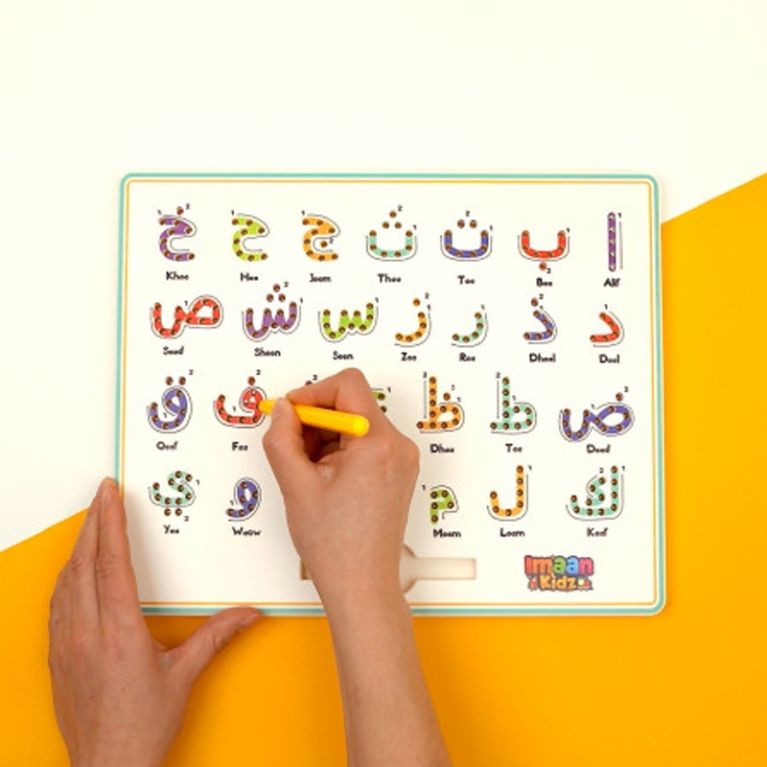 ا ب ت ث ج ح خ
Alif Baa Taa Thaa Jeem Haa Khaa
د ذ ر ز س ش ص
Daal Dhaal Raa Zaa Seen Sheen Saad
ض ط ظ ف ق
Daad Taa Dhaa Faa Qaaf
ك ل م و ي
Kaaf Laam Meem Waaw Yaa
Imaan
Kidz